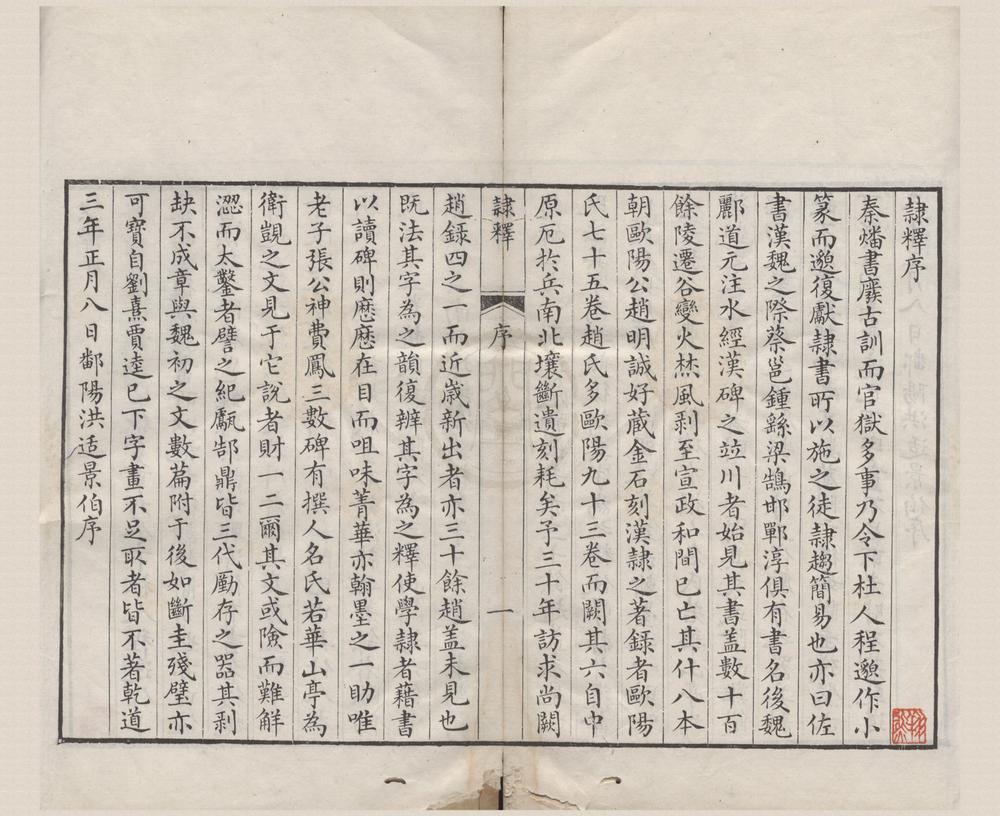 隷釋序
秦燔書廢古訓而官獄多事乃令下杜人程邈作小
篆而邈復獻隷書所以施之徒隷趨簡易也亦曰佐
書漢魏之際蔡邕鍾繇梁鵠邯鄲淳俱有書名後魏
酈道元注水經漢碑之竝川者始見其書盖數十百
餘陵遷谷變火焚風剥至宣政和間已亡其什八本
朝歐陽公趙明誠好蔵金石刻漢隷之著録者歐陽
氏七十五卷趙氏多歐陽九十三卷而闕其六自中
原厄於兵南北壤斷遺刻耗矣予三十年訪求尚闕
隷釋
序
一
趙録四之一而近歲新出者亦三十餘趙盖未見也
既法其字為之韻復辨其字為之釋使學隷者藉書
以讀碑則歷歷在目而咀味菁華亦翰墨之一助唯
老子張公神費鳳三數碑有撰人名氏若華山亭為
衛覬之文見于它說者財一二爾其文或險而難觧
澀而太鑿者譬之紀甗郜鼎皆三代劚存之器其剥
缺不成章與魏初之文數篇附于後如斷圭殘璧亦
可寶自劉熹賈逵已下字畫不足取者皆不著乾道
三年正月八日鄱陽洪适景伯序